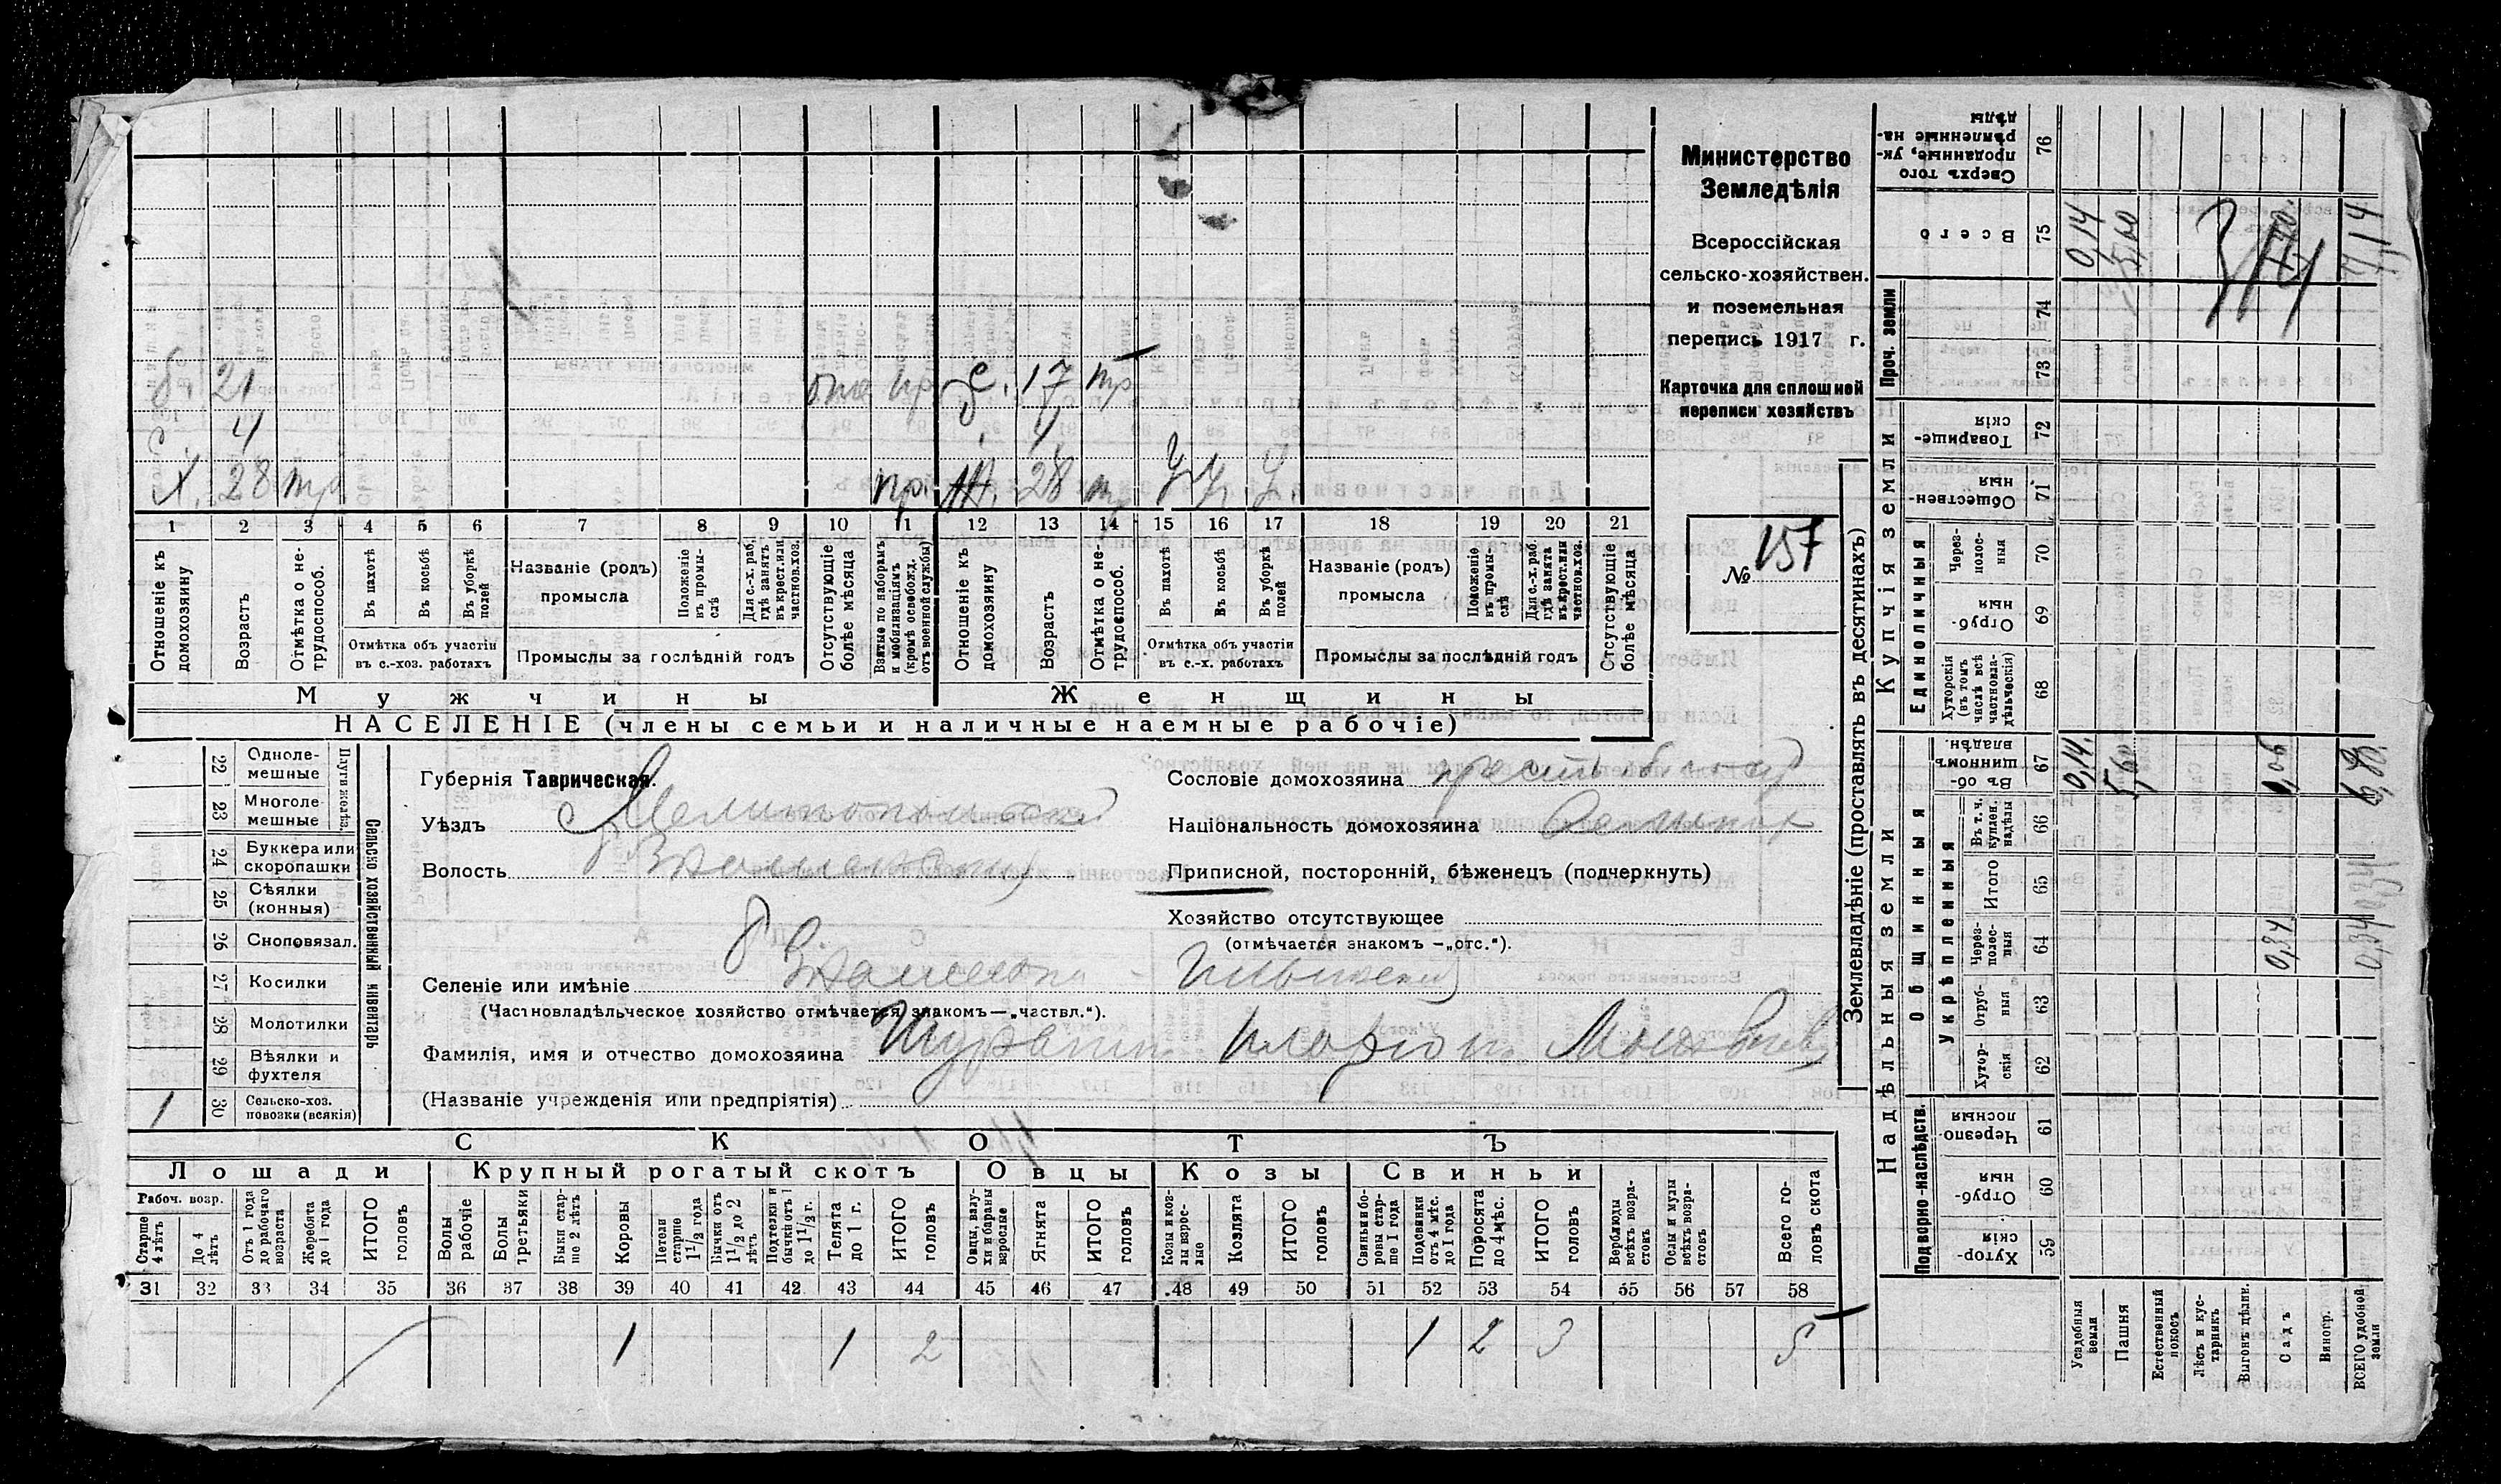 Министерство
Земледѣлія
Всероссійская
сельско-хозяйствен.
и поземельная
перепись 1917 г.
Карточка для сплошной
переписи хозяйствъ
№ 157
21 17 тр
с. 4 4
Х. 28 тр пр. Ж. 28 тр У. У. У.
1 2 3 4 5 6 7 8 9 10 11 12 13 14 15 16 17 18 19 20 21
Отношеніе къ домохозяину
Возрастъ
Отмѣтка о не-трудоспособ.
Въ пахотѣ
Въ косьбѣ
Въ уборкѣ полей
Отмѣтка объ участіи въ с.-хоз. работахъ
Названіе (родъ) промысла
Положеніе въ промы-слѣ
Для с.-х. раб. гдѣ занятъ въ крест. или частнов. хоз.
Промыслы за послѣдній годъ
Отсутствующіе болѣе мѣсяца
Взятые по наборамъ и мобилизаціямъ (кромѣ освобожд. отъ военной службы)
Отношеніе къ домохозяину
Возрастъ
Отмѣтка о не-трудоспособ.
Въ пахотѣ
Въ косьбѣ
Въ уборкѣ полей
Отмѣтка объ участіи въ с.-х. работахъ
Названіе (родъ) промысла
Положеніе въ промы-слѣ
Для с.-х. раб. гдѣ занята въ крест. или частнов. хоз.
Промыслы за послѣдній годъ
Отсутствующіе болѣе мѣсяца
Мужчины Женщины
НАСЕЛЕНІЕ (члены семьи и наличные наемные рабочіе)
Сельско хозяйственный инвентарь
Плуги желѣз.
22 Одноле-мешные
23 Многоле-мешные
24 Буккера или скоропашки
25 Сѣялки (конныя)
26 Сноповязал.
27 Косилки
28 Молотилки
29 Вѣялки и фухтеля
1 30 Сельско-хоз. повозки (всякія)
Губернія Таврическая.
Уѣздъ Мелитопольскій
Волость
Селеніе или имѣніе
(Частновладѣльческое хозяйство отмѣчается знакомъ—„частвл.“).
Фамилія, имя и отчество домохозяина
(Названіе учрежденія или предпріятія)
Сословіе домохозяина
Національность домохозяина
Приписной, посторонній, бѣженецъ (подчеркнуть)
Хозяйство отсутствующее
(отмѣчается знакомъ —„отс.“).
СКОТЪ
Лошади Крупный рогатый скотъ Овцы Козы Свиньи
Рабоч. возр.
Старше 4 лѣтъ
До 4 лѣтъ
Отъ 1 года до рабочаго возраста
Жеребята до 1 года
ИТОГО головъ
Волы рабочіе
Волы третьяки
Быки стар-ше 2 лѣтъ
Коровы
Нетели старше 1 1/2 года
Бычки отъ 1 1/2 до 2 лѣтъ
Подтелки и бычки отъ 1 до 1 1/2 г.
Телята до 1 г.
ИТОГО головъ
Овцы, валу-хи и бараны взрослые
Ягнята
ИТОГО головъ
Козы и коз-лы взрос-лые
Козлята
ИТОГО головъ
Свиньи и бо-ровы стар-ше 1 года
Подсвинки отъ 4 мѣс. до 1 года
Поросята до 4 мѣс.
ИТОГО головъ
Верблюды всѣхъ возра-стовъ
Ослы и мулы всѣхъ возра-стовъ
Всего го-ловъ скота
31 32 33 34 35 36 37 38 39 40 41 42 43 44 45 46 47 48 49 50 51 52 53 54 55 56 57 58
1 1 2 1 2 3 5
Землевладѣніе (проставлять въ десятинахъ)
Надѣльныя земли Купчія земли
Подворно-наслѣдств.
Общинныя
Укрѣпленныя
Единоличныя
Проч. земли
Сверхъ того проданные, ук-рѣпленные на-дѣлы 76
Всего 75 0,14 5,60 1,40 7,14
74
73
Товарище-скія 72
Обществен-ныя 71
Через-полос-ныя 70
Отруб-ныя 69
Хуторскія (въ томъ числѣ всѣ частновла-дѣльческія) 68
Въ об-щинномъ владѣн. 67 0,14. 5,60 1,06 6,80.
Въ т. ч. куплен. надѣлы 66
Итого 65
Через-полос-ныя 64 0,34 0,34
Отруб-ныя 63
Хутор-скія 62
Черезпо-лосныя 61
Отруб-ныя 60
Хутор-скія 59
Усадебныя земли
Пашня
Естественный покосъ
Лѣсъ и кус-тарникъ
Выгонъ цѣлин.
Садъ
Виногр.
ВСЕГО удобной земли